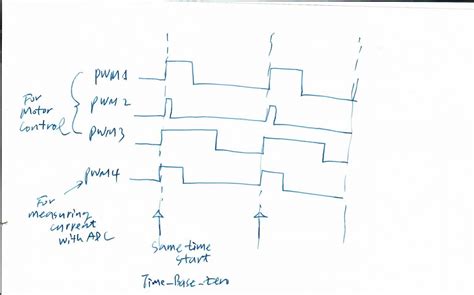 PWM1
PWM2
PWM3
For
Motor
Control
PWM4
For
measuring
current
with ADC
Same time
start
Time_Base_Zero